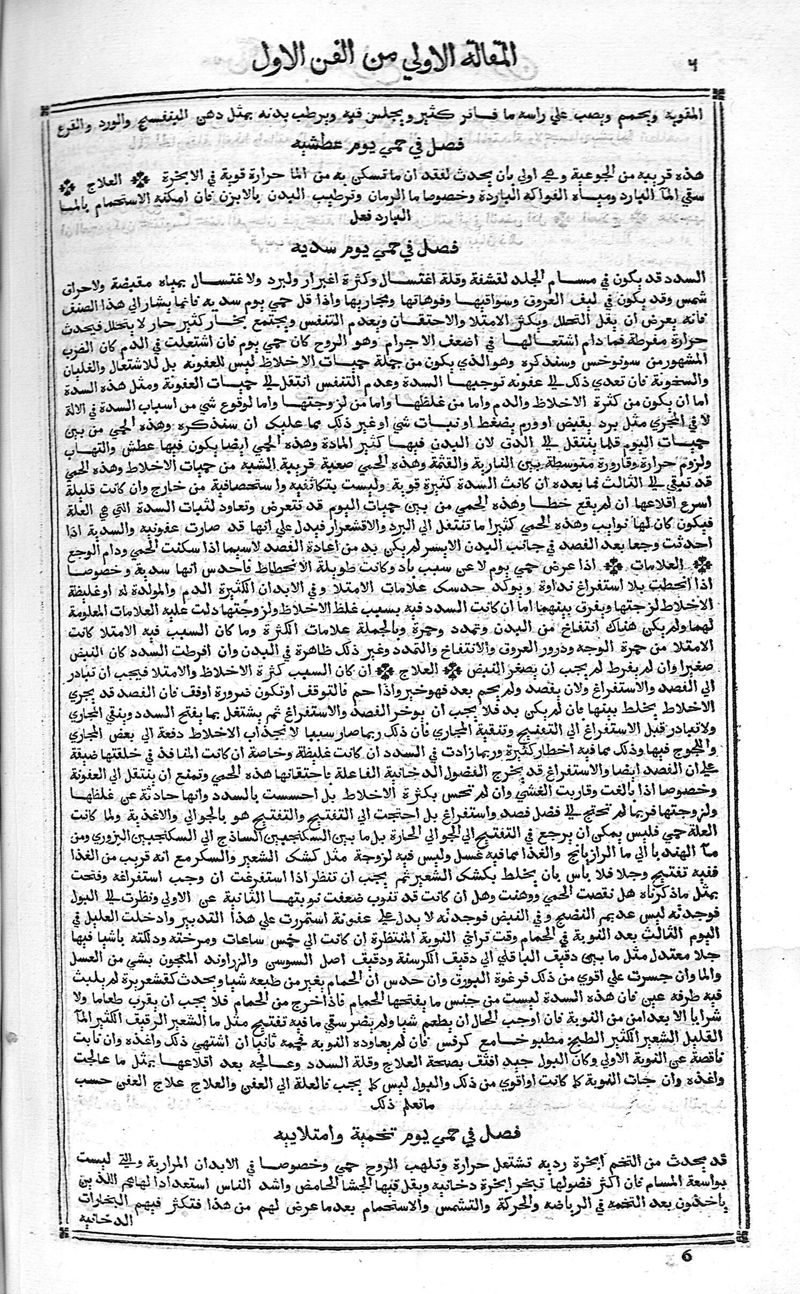 ٦
المقالة الاولي من الفن الاول
المقوية ويحمم ويصب علي راسه ما فاتر كثير ويجلس فيه ويرطب بدنه بمثل دهن البنفسج والورد والقرع
فصل في حمي يوم عطشيه
هذه قريبه من الجوعية وهي اولي بان يحدث لفقد ان ما تسكن به من الما حرارة قوية في الابخرة ❖ العلاج ❖
سقي المآ البارد ومياه الفواكه الباردة وخصوصا ما الرمان وترطيب البدن بالابزن فان امكنه الاستحمام بالمـا
البارد فعل
فصل في حمي يوم سديه
السدد قد يكون في مسام الجلد لقشفة وقلة اغتسال وكثرة اغبرار ولبرد ولاغتسال بمياه مقبضة ولاحراق
شمس وقد يكون في ليف العروق وسواقيها وفوهاتها ومجاريها واذا قل حمي يوم سديه فانما يشار الي هذا الصنف
فانه يعرض ان يقل التحلل ويكثر الامتلا والاحتقان ويعدم التنفس ويجتمع بخار كثير حار لا يتحلل فيحدث
حرارة مفرطة فما دام اشتعالها في اضعف الاجرام وهو الروح كان حمي يوم فان اشتعلت في الدم كان الضرب
المشهور من سونوخس وسنذكره وهو الذي يكون من جملة حميات الاخلاط ليس للعفونه بل للاشتعال والغليان
والسخونة فان تعدي ذلك الي عفونه توجبها السدة وعدم التنفس انتقل الي حميات العفونة ومثل هذه السدة
اما ان يكون من كثرة الاخلاط والدم واما من غلظها واما من لزوجتها واما لوقوع شي من اسباب السدة في الالة
لا في المجري مثل برد يقبض او ورم يضغط او نبات شي او غير ذلك مما عليك ان سنذكره وهذه الحمي من بين
حميات اليوم قلما ينتقل الي الدق لان البدن فيها كثير المادة وهذه الحمي ايضا يكون فيها عطش والتهاب
ولزوم حرارة وقارورة متوسطة بين النارية والقتمة وهذه الحمي صعبة قريبة الشبه من حميات الاخلاط وهذه الحمي
قد تبقي الي الثالث فما بعده ان كانت السدة كثيرة قوية وليست بتكاثفيه واستحصافية من خارج وان كانت قليلة
اسرع اقلاعها ان لم يقع خطا وهذه الحمي من بين حميات اليوم قد تتعرض وتعاود لثبات السدة التي هي العلة
فيكون كان لها نوايب وهذه الحمي كثيرا ما تنتقل الي البرد والاقشعرار فيدل علي انها قد صارت عفونيه والسدية اذا
احدثت وجعا بعد الفصد في جانب البدن الايسر لم يكن بد من اعادة الفصد لاسيما اذا سكنت الحمي ودام الوجع
❖ العلامات ❖ اذا عرض حمي يوم لا عن سبب باد وكانت طويلة الانحطاط فاحدس انها سدية وخصوصا
اذا انحطت بلا استفراغ نداوة ويوكد حدسك علامات الامتلا وفي الابدان الكثيرة الدم والمولدة له او غليظة
الاخلاط لزجتها ويفرق بينهما اما ان كانت السدد فيه بسبب غلظ الاخلاط ولزوجتها دلت عليه العلامات المعلومة
لهما ولم يكن هناك انتفاخ من البدن وتمدد وحمرة وبالجملة علامات الكثرة وما كان السبب فيه الامتلا كانت
الامتلا من حمرة الوجه ودرور العروق والانتفاخ والتمدد وغير ذلك ظاهرة في البدن وان افرطت السدد كان النبض
صغيرا وان لم يفرط لم يجب ان يصغر النبض ❖ العلاج ❖ ان كان السبب كثرة الاخلاط والامتلا فيجب ان تبادر
الي الفصد والاستفراغ ولان يفصد ولم يحم بعد فهو خير واذا حم فالتوقف اوتكون ضرورة اوفق فان الفصد قد يجري
الاخلاط يخلط بينها فان لم يكن بد فلا يجب ان يوخر الفصد والاستفراغ ثم يشتغل بما يفتح السدد وينقي المجاري
ولا تبادر قبل الاستفراغ الي التفتيح وتنقية المجاري فان ذلك ربما صار سببا لانجذاب الاخلاط دفعة الي بعض المجاري
واللحوج فيها وذلك مما فيه اخطار كثيرة وربما زادت في السدد ان كانت غليظة وخاصة ان كانت المنافذ في خلقتها ضيقة
علي ان الفصد ايضا والاستفراغ قد يخرج الفضول الدخانية الفاعلة باحتقانها هذه الحمي وتمنع ان ينتقل الي العفونة
وخصوصا اذا بالغت وقاربت الغشي وان لم تحس بكثرة الاخلاط بل احسست بالسدد وانها حادثة عن غلظها
ولزوجتها فربما لم تحتج الي فضل فصد واستفراغ بل احتجت الي التفتيح والتفتيح هو بالجوالي والاغذية ولما كانت
العلة حمي فليس يمكن ان يرجع في التفتيح الي الجوالي الحارة بل ما بين السكنجبين الساذج الي السكنجبين البزوري ومن
مآ الهنديا الي ما الرازيانج والغذا مما فيه غسل وليس فيه لزوجة مثل كشك الشعير والسكر مع انه قريب من الغذا
ففيه تفتيح وجلا فلا بأس بان يخلط بكشك الشعير ثم يجب ان تنظر اذا استفرغت ان وجب استفراغه وفتحت
بمثل ما ذكرناه هل نقصت الحمي ووهنت وهل ان كانت قد تنوب ضعفت نوبتها الثانية عن الاولي ونظرت الي البول
فوجدته ليس عديم النضج وفي النبض فوجدته لا يدل علي عفونة استمررت علي هذا التدبير وادخلت العليل في
اليوم الثالث بعد النوبة في الحمام وقت تراتي النوبة المنتظرة ان كانت الي خمس ساعات ومرخته ودلكته باشيا فيها
جلا معتدل مثل ما بين دقيق الباقلي الي دقيق الكرسنة ودقيق اصل السوسي والزراوند المعجون بشي من العسل
والما وان جسرت علي اقوي من ذلك فرغوة البورق وان حدس ان الحمام يغير من طبعه شيا ويحدث كقشعريرة لم يلبث
فيه طرفه عين فان هذه السدة ليست من جنس ما يفتحها الحمام فاذا خرج من الحمام فلا يجب ان يقرب طعاما ولا
شرابا الا بعد امن من النوبة فان اوجب الحال ان يطعم شيا ولم يضر سقي ما فيه تفتيح مثل ما الشعير الرقيق الكثير المآ
القليل الشعير الكثير الطبخ مطبوخا مع كرفس فان لم يعاوده النوبة فحمه ثانيا ان اشتهي ذلك واغذه وان نابت
ناقصة عن النوبة الاولي وكان البول جيد افثق بصحة العلاج وقلة السدد وعالجه بعد اقلاعها بمثل ما عالجت
واغذه وان جات النوبة كما كانت اواقوي من ذلك والبول ليس كما يجب فالعلة الي العفن والعلاج علاج العفن حسب
ما تعلم ذلك
فصل في حمي يوم تخمية وامتلاييه
قد يحدث من التخم ابخرة ردية تشتعل حرارة وتلهب الروح حمي وخصوصا في الابدان المرارية والتي ليست
بواسعة المسام فان اكثر فضولها تبخر ابخرة دخانيه ويقل فيها الجشا الحامض واشد الناس استعدادا لهاهم الذين
ياخذون بعد التخمه في الرياضه والحركة والتشمس والاستحمام بعد ما عرض لهم من هذا فتكثر فيهم البخارات
الدخانيه
6